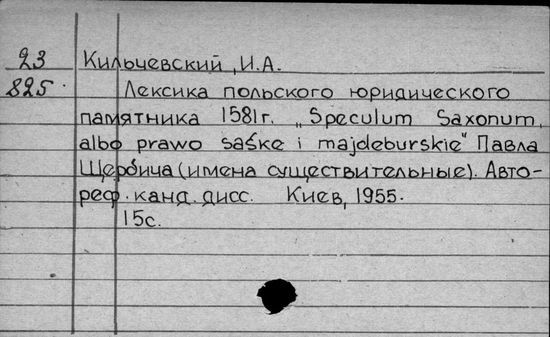 23 Кильчевский, И.А.
825. Лексика польского юридического
памятника 1581г. „Speculum Saxonum,
albo prawo saske i majdeburskie" Павла
Щербича (имена существительные). Авто-
реф. канд. дисс. Киев, 1955.
15с.